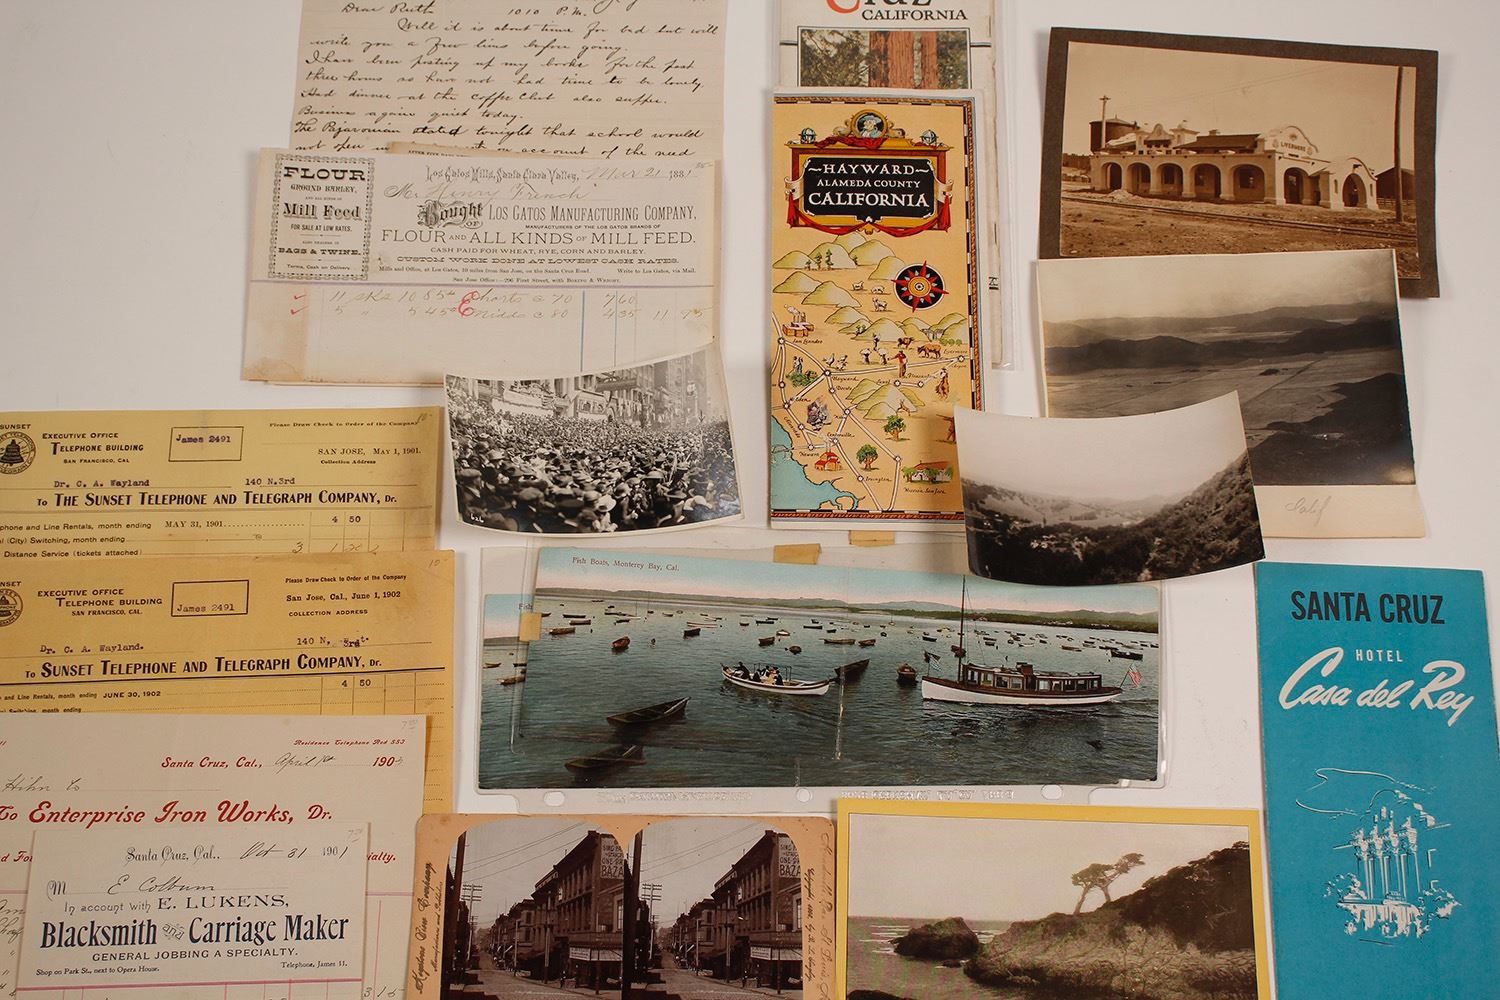 Dear Ruth 1010 P.M.
Well it is about time for bed but will
write you a few lines before going.
I have been posting up my books for the past
three hours so have not had time to be lonely.
Had dinner at the coffee Club also supper.
Business again quiet today.
The Pajaronian stated tonight that school would
not open on account of the need
FLOUR
GROUND BARLEY,
AND ALL KINDS OF
Mill Feed
FOR SALE AT LOW RATES.
ALSO DEALERS IN
BAGS & TWINE.
Terms, Cash on Delivery
Los Gatos Mills, Santa Clara Valley, Mar 21 1881
Mr. Henry French
Bought of LOS GATOS MANUFACTURING COMPANY,
MANUFACTURERS OF THE LOS GATOS BRANDS OF
FLOUR AND ALL KINDS OF MILL FEED.
CASH PAID FOR WHEAT, RYE, CORN AND BARLEY.
CUSTOM WORK DONE AT LOWEST CASH RATES.
Mills and Office, at Los Gatos, 10 miles from San Jose, on the Santa Cruz Road. Write to Los Gatos, via Mail.
San Jose Office:—296 First Street, with BORING & WRIGHT.
11 sks 1085 Shorts c 70 7 60
5 " 545 Midds c 80 4 35 11 95
Cruz
CALIFORNIA
HAYWARD
ALAMEDA COUNTY
CALIFORNIA
San Leandro
Hayward
Livermore
Pleasanton
Sunol
Decoto
Centerville
Newark
Irvington
Mission San Jose
LIVERMORE
Calif
626
SUNSET
EXECUTIVE OFFICE
TELEPHONE BUILDING
SAN FRANCISCO, CAL
James 2491
Please Draw Check to Order of the Company
SAN JOSE, MAY 1, 1901.
Collection Address
Dr. C. A. Wayland 140 N.3rd
To THE SUNSET TELEPHONE AND TELEGRAPH COMPANY, Dr.
phone and Line Rentals, month ending MAY 31, 1901 4 50
(City) Switching, month ending
Distance Service (tickets attached) 3
SUNSET
EXECUTIVE OFFICE
TELEPHONE BUILDING
SAN FRANCISCO, CAL.
James 2491
Please Draw Check to Order of the Company
San Jose, Cal., June 1, 1902
COLLECTION ADDRESS
Dr. C. A. Wayland. 140 N, 3rd
To SUNSET TELEPHONE AND TELEGRAPH COMPANY, Dr.
and Line Rentals, month ending JUNE 30, 1902 4 50
Switching, month ending
Residence Telephone Red 553
Santa Cruz, Cal., April 1st 190
Hihn Co
To Enterprise Iron Works, Dr.
Santa Cruz, Cal., Oct 31 1901
M E Colburn
In account with E. LUKENS,
Blacksmith and Carriage Maker
GENERAL JOBBING A SPECIALTY.
Shop on Park St., next to Opera House. Telephone, James 11.
Fish Boats, Monterey Bay, Cal.
Fish
Keystone View Company
Manufacturers and Publishers
BAZA
BAZA
SANTA CRUZ
HOTEL
Casa del Rey